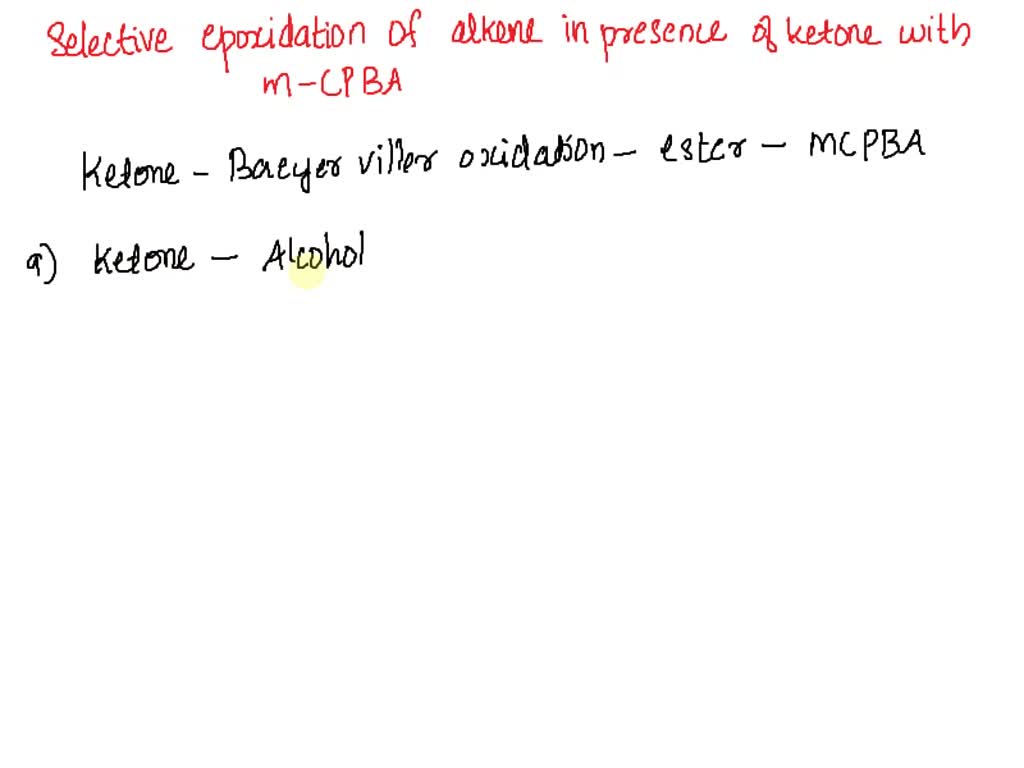 Selective epoxidation of alkene in presence of ketone with
m-CPBA
Ketone - Baeyer viller oxidation - ester - MCPBA
a) Ketone - Alcohol